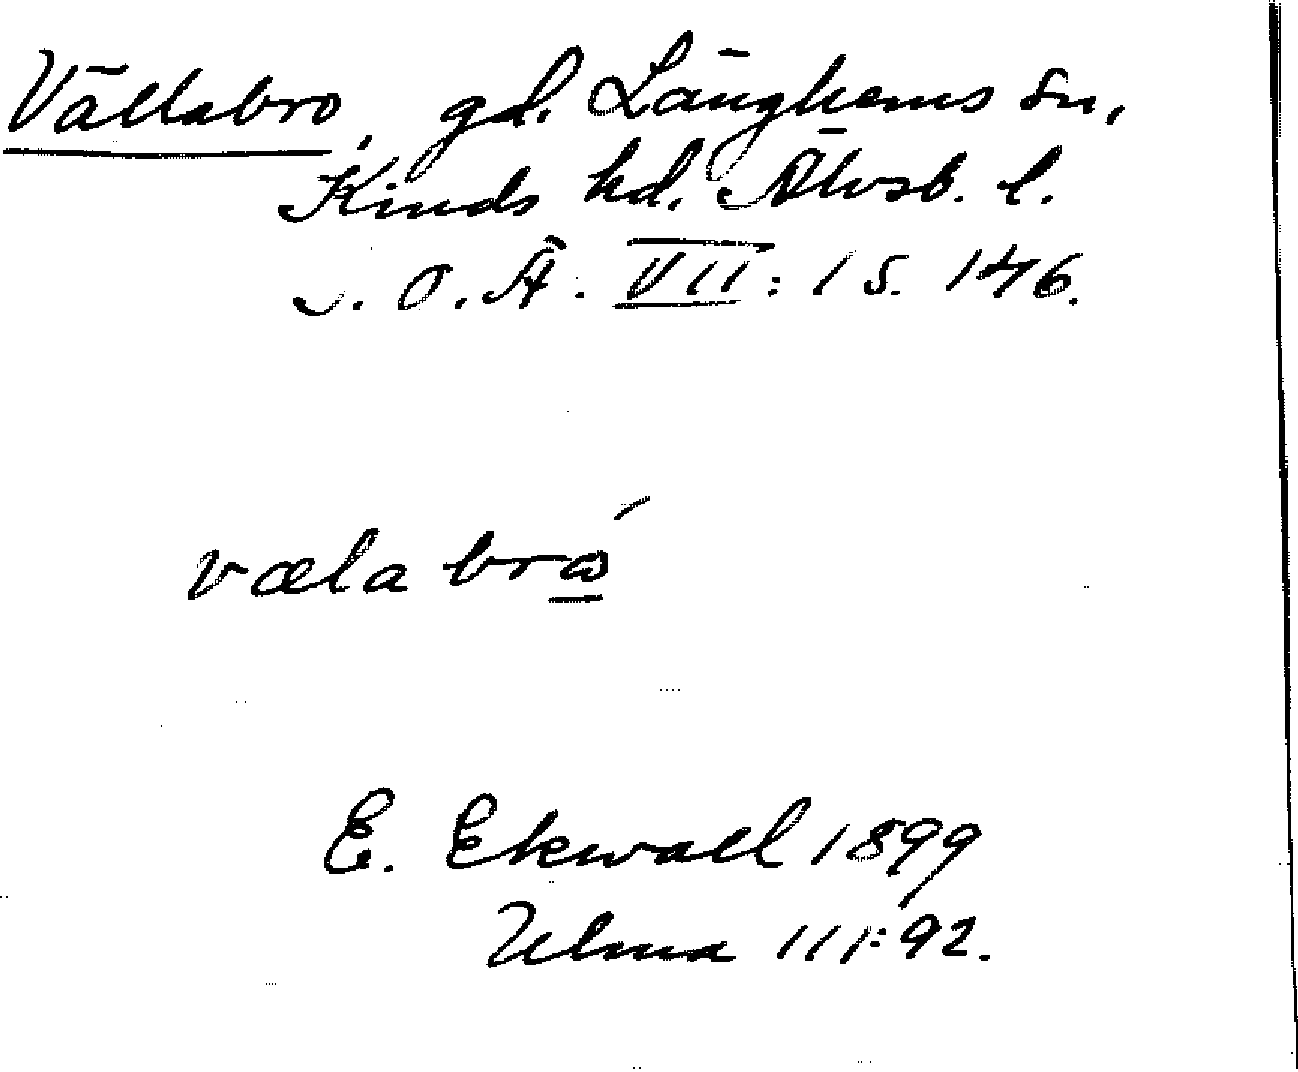 Vällabro, gd. Länghems sn,
Kinds hd. Älvsb. l.
s. O. Ä. VII: 1 s. 146.
vælabrɷ́
E. Ekwall 1899
Ulma 111:92.